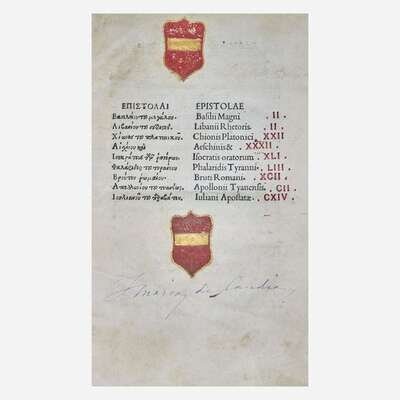 ΕΠΙΣΤΟΛΑΙ EPISTOLAE
Βασιλείου τοῦ μεγάλου. Basilii Magni . II
Λιβανίου τοῦ σοφιστοῦ. Libanii Rhetoris . II
Χίωνος τοῦ πλατωνικοῦ. Chionis Platonici . XXII
Αἰσχίνου καὶ Aeschinis & . XXXII
Ἰσοκράτους τῶν ῥητόρων. Isocratis oratorum . XLI
Φαλάριδος τοῦ τυράννου Phalaridis Tyranni . LIII
Βρούτου ῥωμαίου Bruti Romani . XCII
Ἀπολλωνίου τοῦ τυανέως. Apollonii Tyanensis . CII
Ἰουλιανοῦ τοῦ Iuliani Apostatæ . CXIV
de